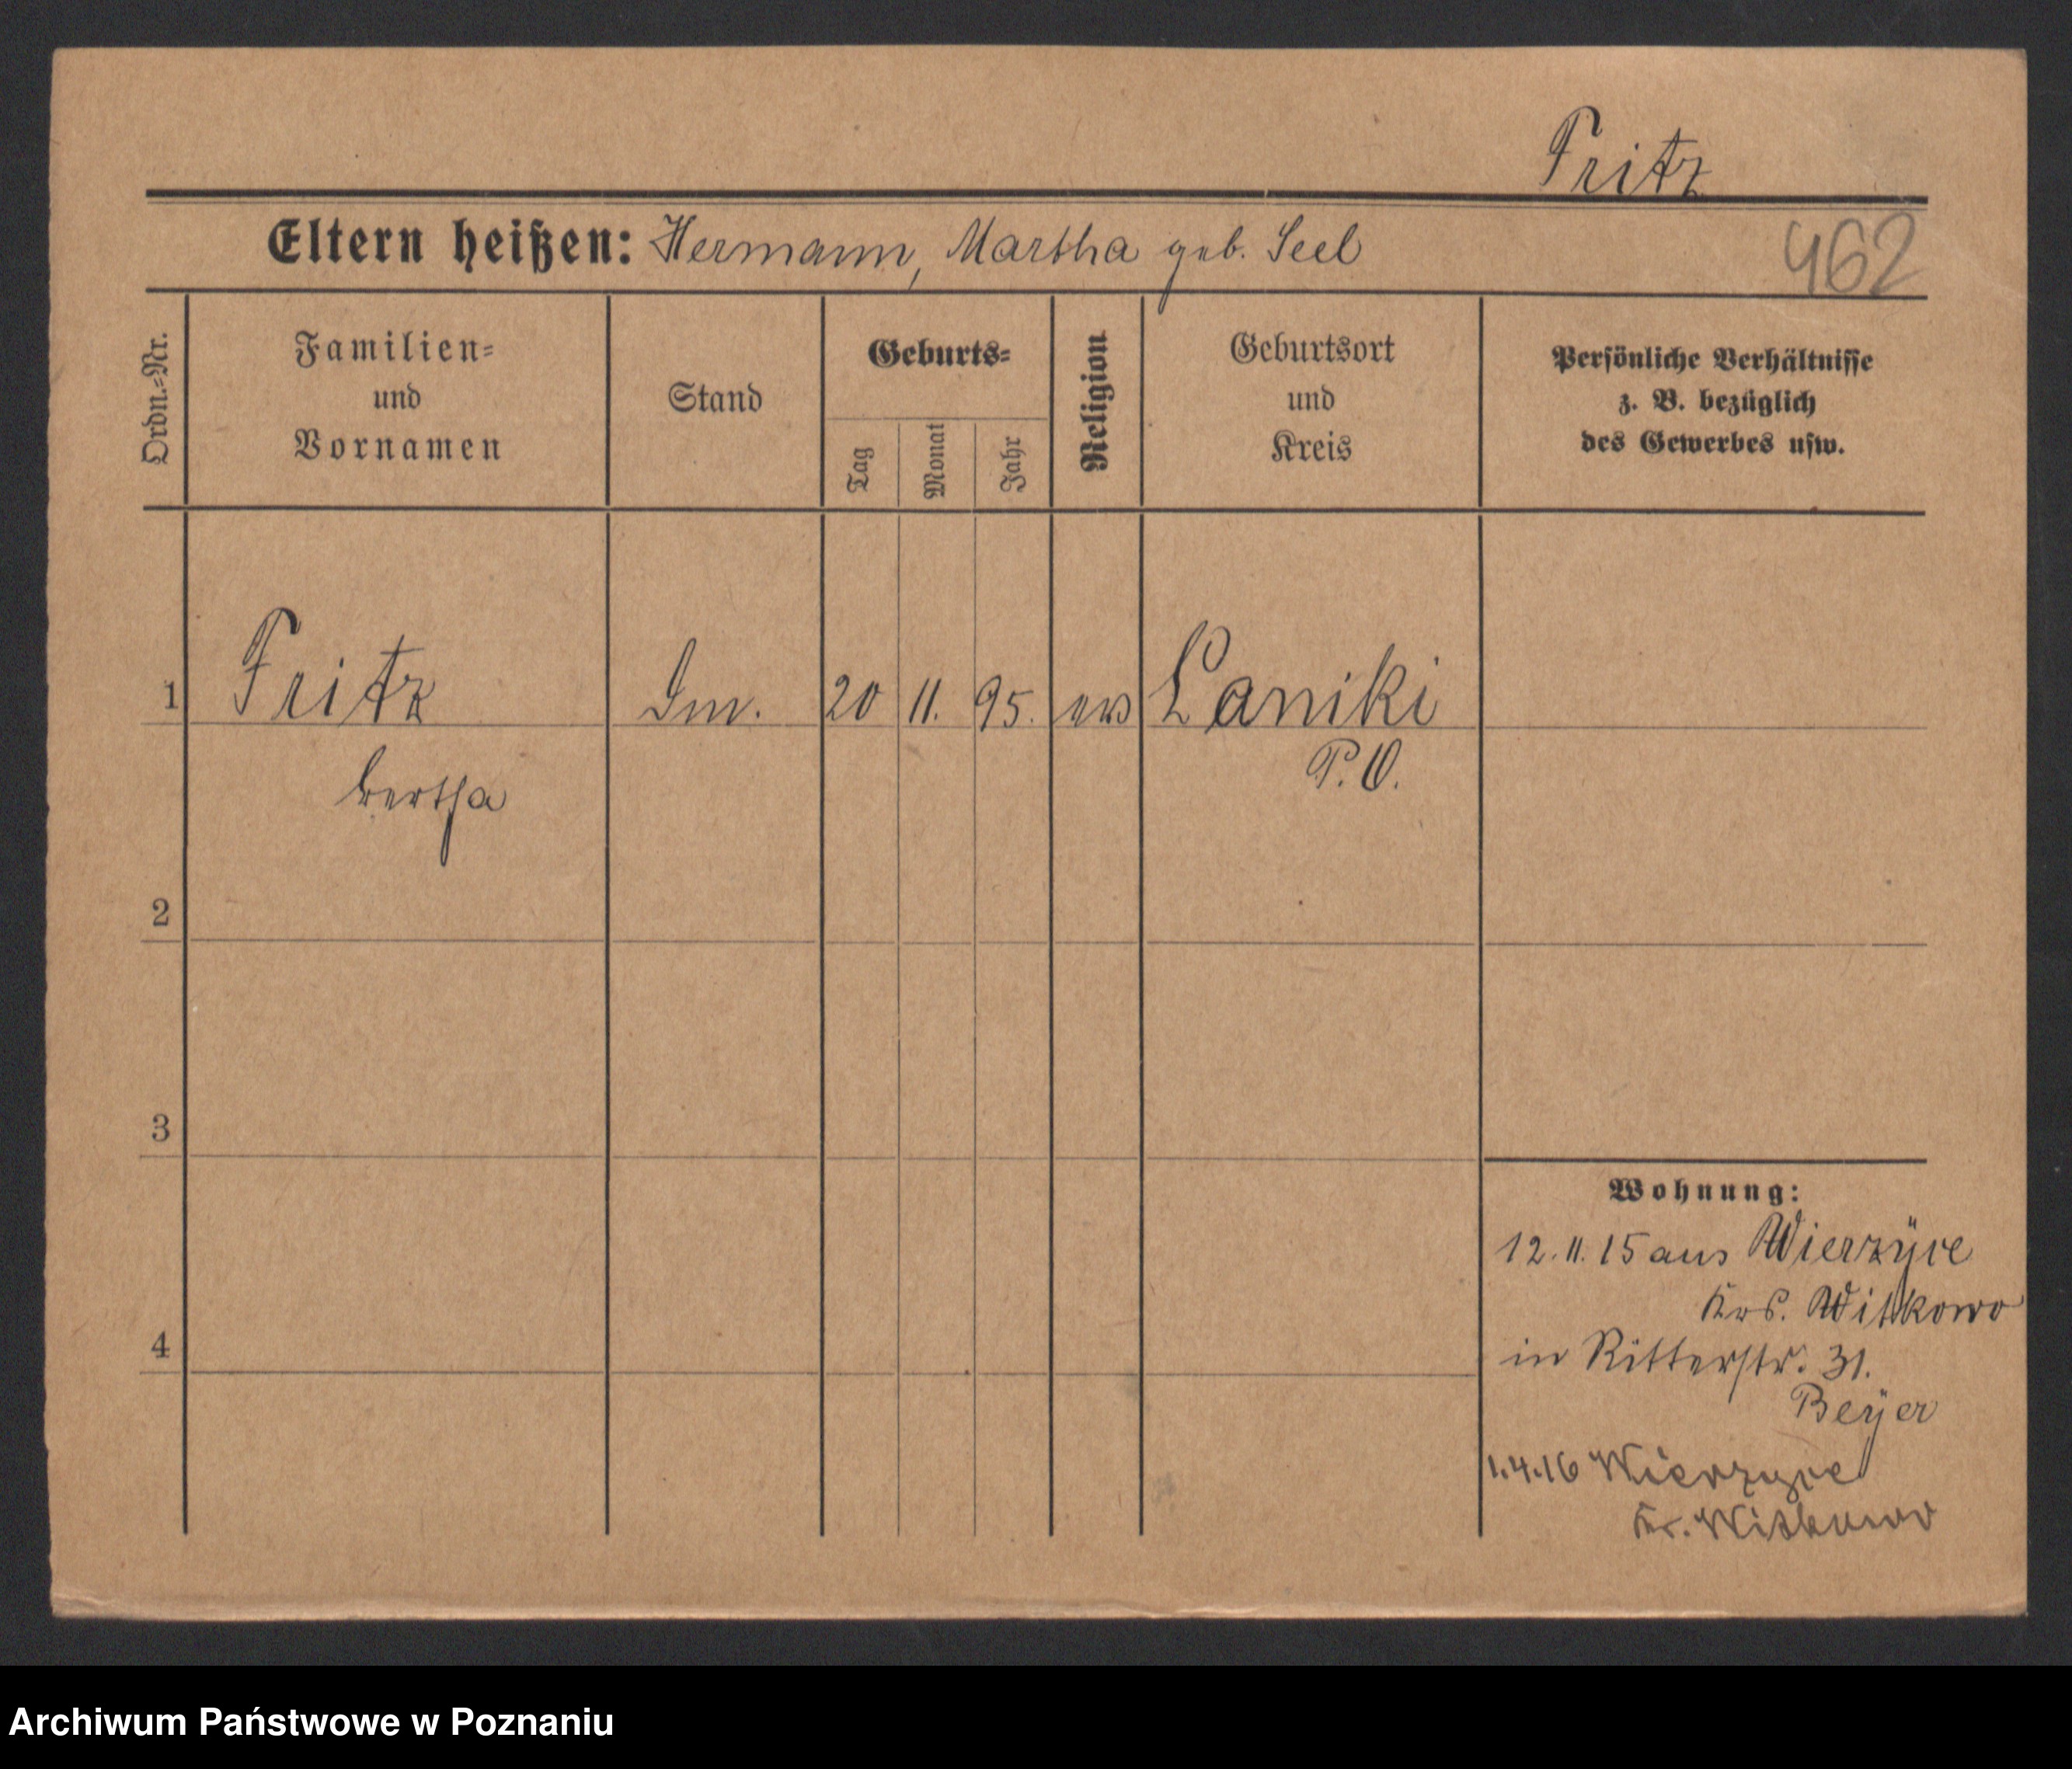 Fritz
Eltern heißen: Hermann, Martha geb. Seel
462
Ordn.-Nr.
Familien-
und
Vornamen
Stand
Geburts-
Tag
Monat
Jahr
Religion
Geburtsort
und
Kreis
Persönliche Verhältnisse
z. B. bezüglich
des Gewerbes usw.
1 Fritz 20 11. 95. ev Laniki
bertha P. O.
2
3
4
Wohnung:
12. 11. 15 aus Wierzyce
Krs. Witkowo
in Ritterstr. 31.
Beyer
1.4.16 Wierzyce
Kr. Witkowo
Archiwum Państwowe w Poznaniu